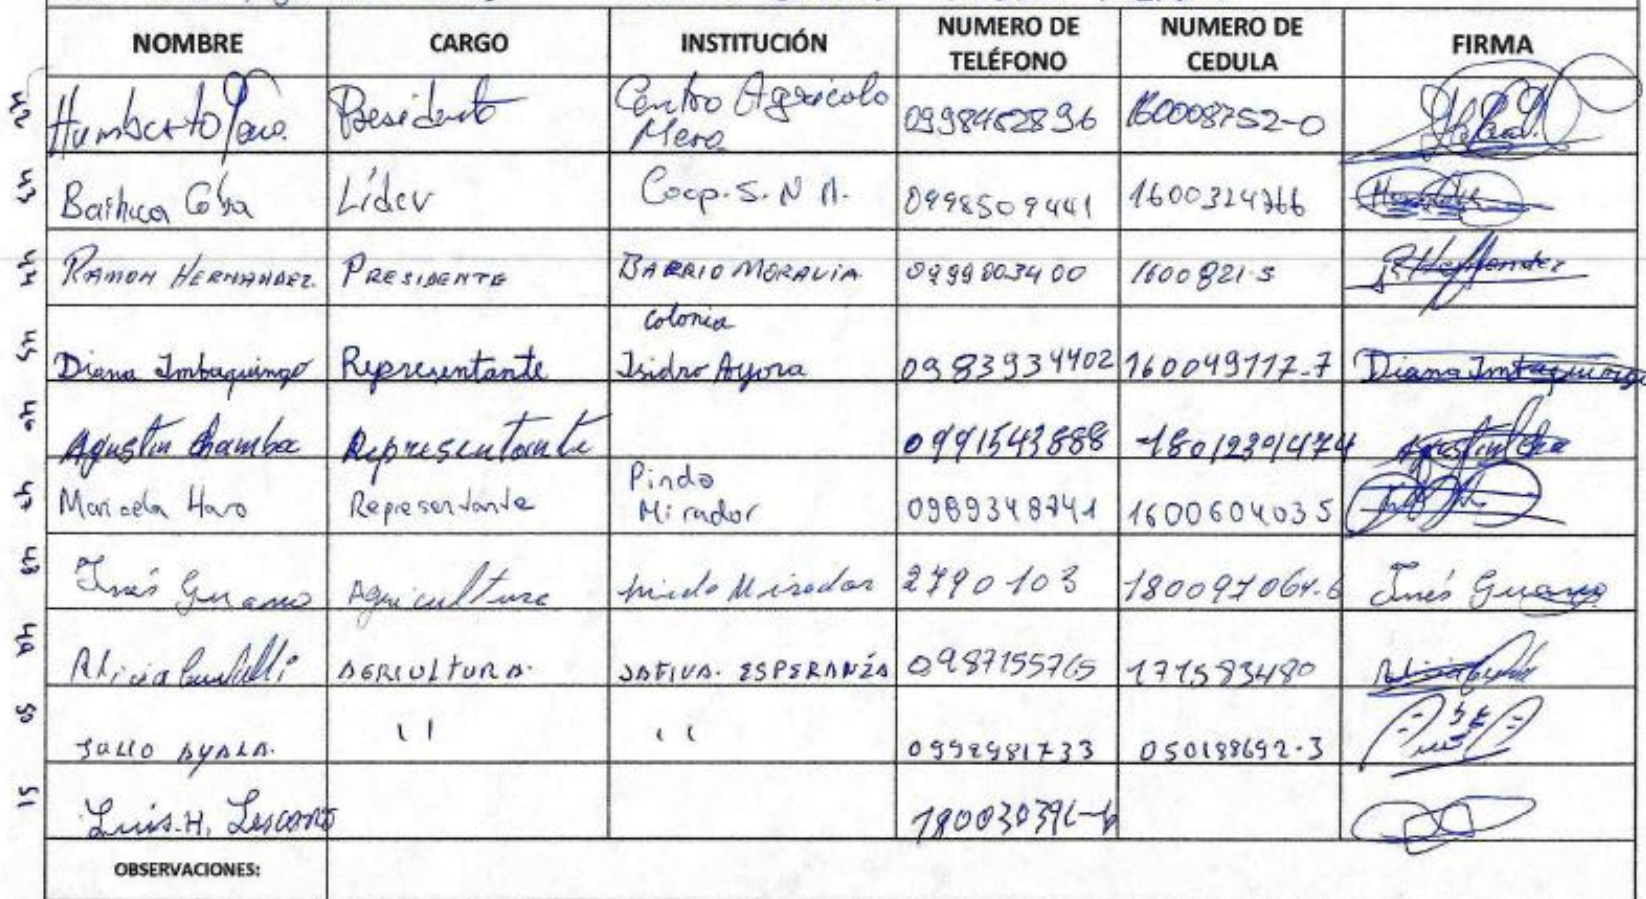 NOMBRE CARGO INSTITUCIÓN NUMERO DE TELÉFONO NUMERO DE CEDULA FIRMA
42 Humberto Presidente Centro Agricola Mera 0998462896 160008752-0
43 Lider Coop. S. N A. 0998509441 1600324766
44 RAMON HERNANDEZ. PRESIDENTE BARRIO MORAVIA 0999003400 1600821-5 R Hernandez
45 Diana Imbaquingo Representante colonia Isidro Ayora 0983934402 160049117-7 Diana Imbaquingo
46 Agustin Chamba Representante 0991543888 Agustin Cha
47 Maricela Haro Representante Pindo Mirador 0989348741 1600604035
48 Inés Guamo Agricultura Pindo Mirador 2790103 180097064-6 Inés Guamo
49 Alicia AGRICULTURA. ESPERANZA 0987155765 171583480
50 JULIO AYALA. 11 11 0992981733 050188692-3
51 Luis. H. Lescano
OBSERVACIONES: